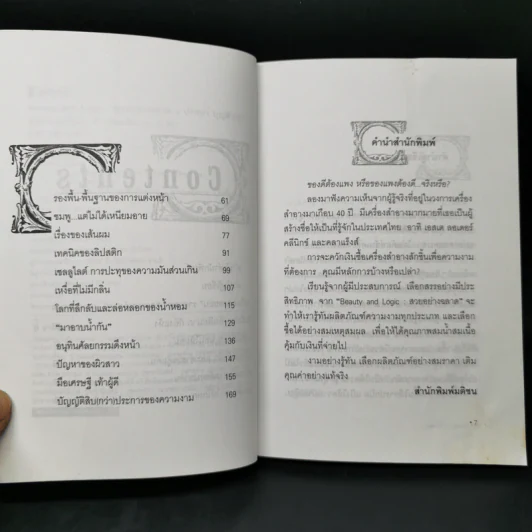 รองพื้น-พื้นฐานของการแต่งหน้า 61
ชมพู...แต่ไม่ได้เหนียมอาย 69
เรื่องของเส้นผม 77
เทคนิคของลิปสติก 91
เซลลูไลต์ การปะทุของความมันส่วนเกิน 99
เหงื่อที่ไม่มีกลิ่น 107
โลกที่ลึกลับและล่อหลอกของน้ำหอม 115
"มาอาบน้ำกัน" 129
อนุทินศัลยกรรมดึงหน้า 136
ปัญหาของผิวสาว 147
มือเศรษฐี เท้าผู้ดี 155
บัญญัติสิบ(กว่า)ประการของความงาม 169
คำนำสำนักพิมพ์
ของดีต้องแพง หรือของแพงต้องดี...จริงหรือ?
ลองมาฟังความเห็นจากผู้รู้จริงที่อยู่ในวงการเครื่อง
สำอางมาเกือบ 40 ปี มีเครื่องสำอางมากมายที่เธอเป็นผู้
สร้างชื่อให้เป็นที่รู้จักในประเทศไทย อาทิ เอสเต ลอเดอร์
คลีนิกข์ และคลาแร็งส์
การจะควักเงินซื้อเครื่องสำอางสักชิ้นเพื่อความงาม
ที่ต้องการ คุณมีหลักการบ้างหรือเปล่า?
เรียนรู้จากผู้มีประสบการณ์ เลือกสรรอย่างมีประ
สิทธิภาพ จาก "Beauty and Logic : สวยอย่างฉลาด" จะ
ทำให้เรารู้ทันผลิตภัณฑ์ความงามทุกประเภท และเลือก
ซื้อได้อย่างสมเหตุสมผล เพื่อให้ได้คุณภาพสมน้ำสมเนื้อ
คุ้มกับเงินที่จ่ายไป
งามอย่างรู้ทัน เลือกผลิตภัณฑ์อย่างสมราคา เติม
คุณค่าอย่างแท้จริง
สำนักพิมพ์มติชน